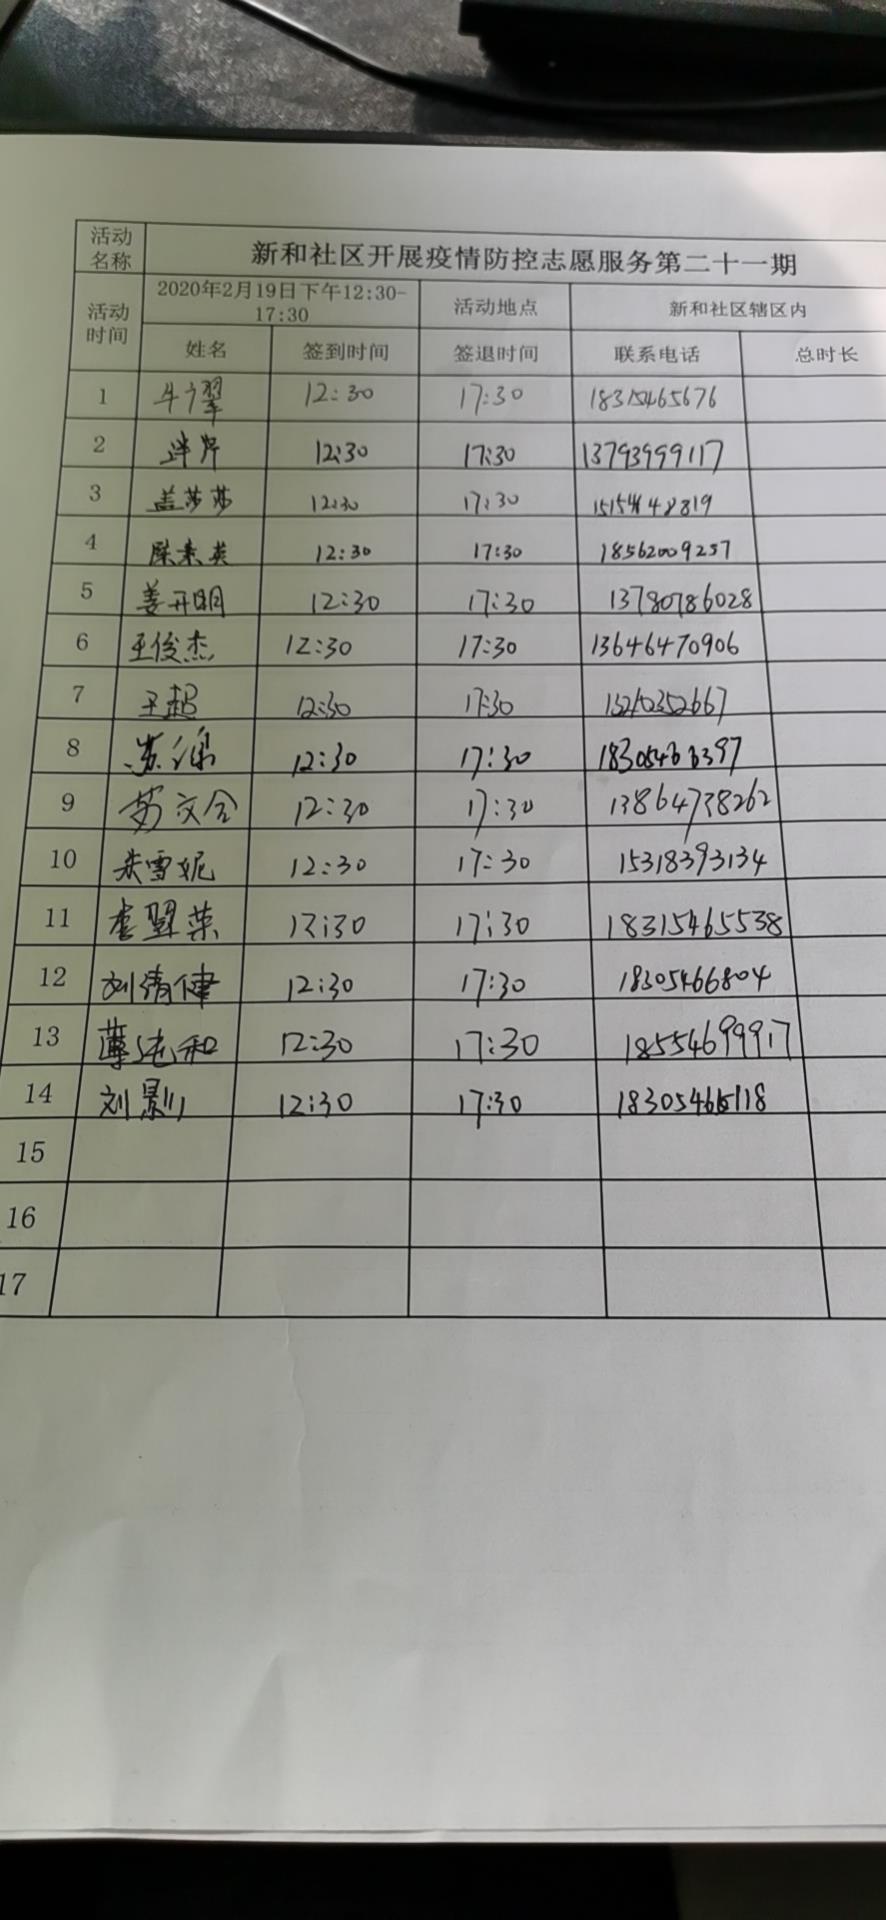 活动名称 新和社区开展疫情防控志愿服务第二十一期
活动时间 2020年2月19日下午12:30-17:30 活动地点 新和社区辖区内
姓名 签到时间 签退时间 联系电话 总时长
1 12:30 17:30 18315465676
2 12:30 17:30 13793999117
3 盖莎莎 12:30 17:30
4 陈素英 12:30 17:30 18562009257
5 姜开明 12:30 17:30 13780786028
6 王俊杰 12:30 17:30 13646470906
7 王超 12:30 17:30
8 12:30 17:30
9 12:30 17:30 13864738262
10 朱雪妮 12:30 17:30 15318393134
11 12:30 17:30 18315465538
12 刘清健 12:30 17:30 18305466804
13 薄纯和 12:30 17:30 18554699917
14 刘影 12:30 17:30
15
16
17